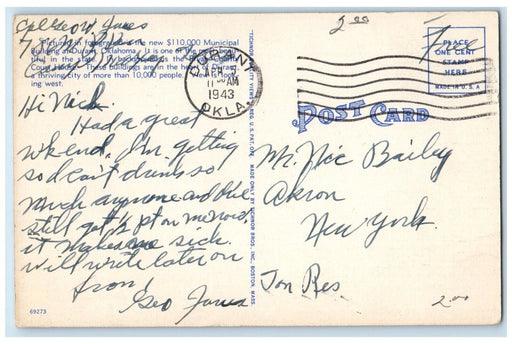 2.00
Cpl Geo W Jones
Free
Pictured in foreground is the new $110,000 Municipal
Building at Durant, Oklahoma. It is one of the most beau-
tiful in the state. In background is the Bryan County
Court House. These buildings are in the heart of Durant,
a thriving city of more than 10,000 people. View look-
ing west.
DURANT
11 AM
1943
OKLA.
PLACE
ONE CENT
STAMP
HERE
MADE IN U.S.A
POST CARD
Hi Nick.
Had a great
wk end. I'm getting
so I can't drink so
much anymore and I've
still got 1/2 pt on me now
it makes me sick.
Will write later on
from
Geo Jones
"TICHNOR QUALITY VIEWS," REG. U.S. PAT. OFF. MADE ONLY BY TICHNOR BROS., INC., BOSTON, MASS.
Mr. Nic Bailey
Akron
New York.
69273
2.00